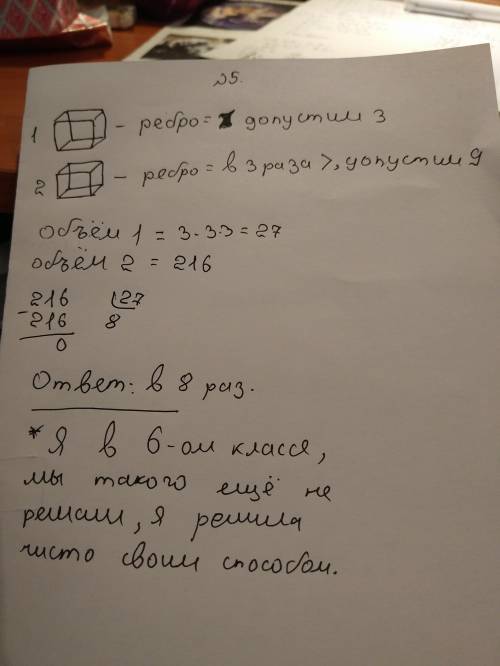 №5.
1 – ребро = допустим 3
2 – ребро = в 3 раза >, допустим 9
объём 1 = 3·3·3 = 27
объём 2 = 216
216 27
-216 8
0
Ответ: в 8 раз.
* Я в 6-ом классе,
мы такого ещё не
решали, я решила
чисто своим способом.